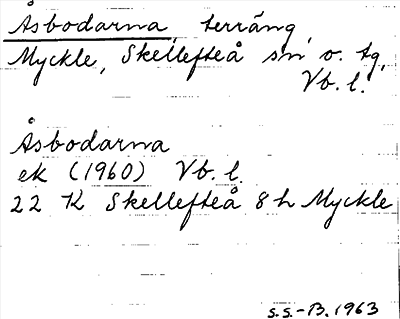 Åsbodarna, terräng,
Myckle, Skellefteå sn o. tg,
Vb. l.
Åsbodarna
ek (1960) Vb. l.
22 K Skellefteå 8 h Myckle
S.S.-B. 1963